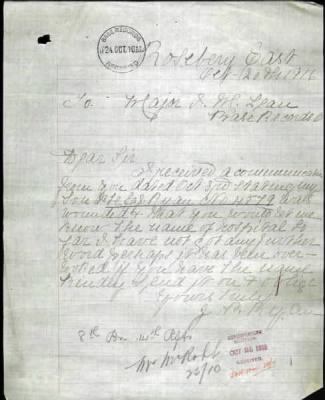 BASE RECORDS
24 OCT. 1916
Rosebery East
Oct 20th 1916
To Major J. M. Lean
Base Records
Dear Sir
I received a communicat
from you dated Oct 3rd stating my
Son Ryan No 4579 was
wounded & that you would let me
know the name of hospital So
far I have not got any further
word perhaps it has been over-
looked if you have the name
kindly send it on & oblige
Yours truly
J. Ryan
8th Bn
25/10
OCT